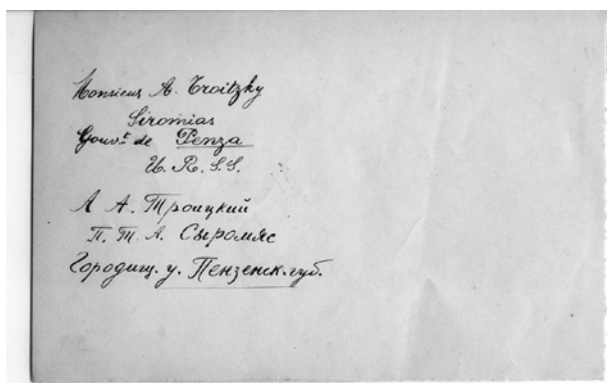 Monsieur A. Troitzky
Siromias
Gouvt de Penza
U. R. S. S.
А А. Троицкий
П. Т. А. Сыромяс
Городищ. у. Пензенск. губ.